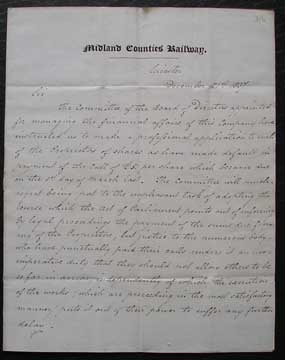 Midland Counties Railway.
Leicester
December
Sir
The Committee of the Board of Directors appointed
for managing the financial affairs of this Company have
instructed us to make a professional application to such
of the Proprietors of shares as have made default in
payment of the Call of per share which became due
on the 1st day of March last. The Committee will much
regret being put to the unpleasant task of adopting the
course which the Act of Parliament points out of enforcing
by legal proceedings the payment of the sums due from
any of the Proprietors, but justice to the numerous body
who have punctually paid their calls renders it an
imperative duty that they should not allow others to be
so far in arrear independently of which the execution
of the works, which are proceeding in the most satisfactory
manner, puts it out of their power to suffer any further
delay.